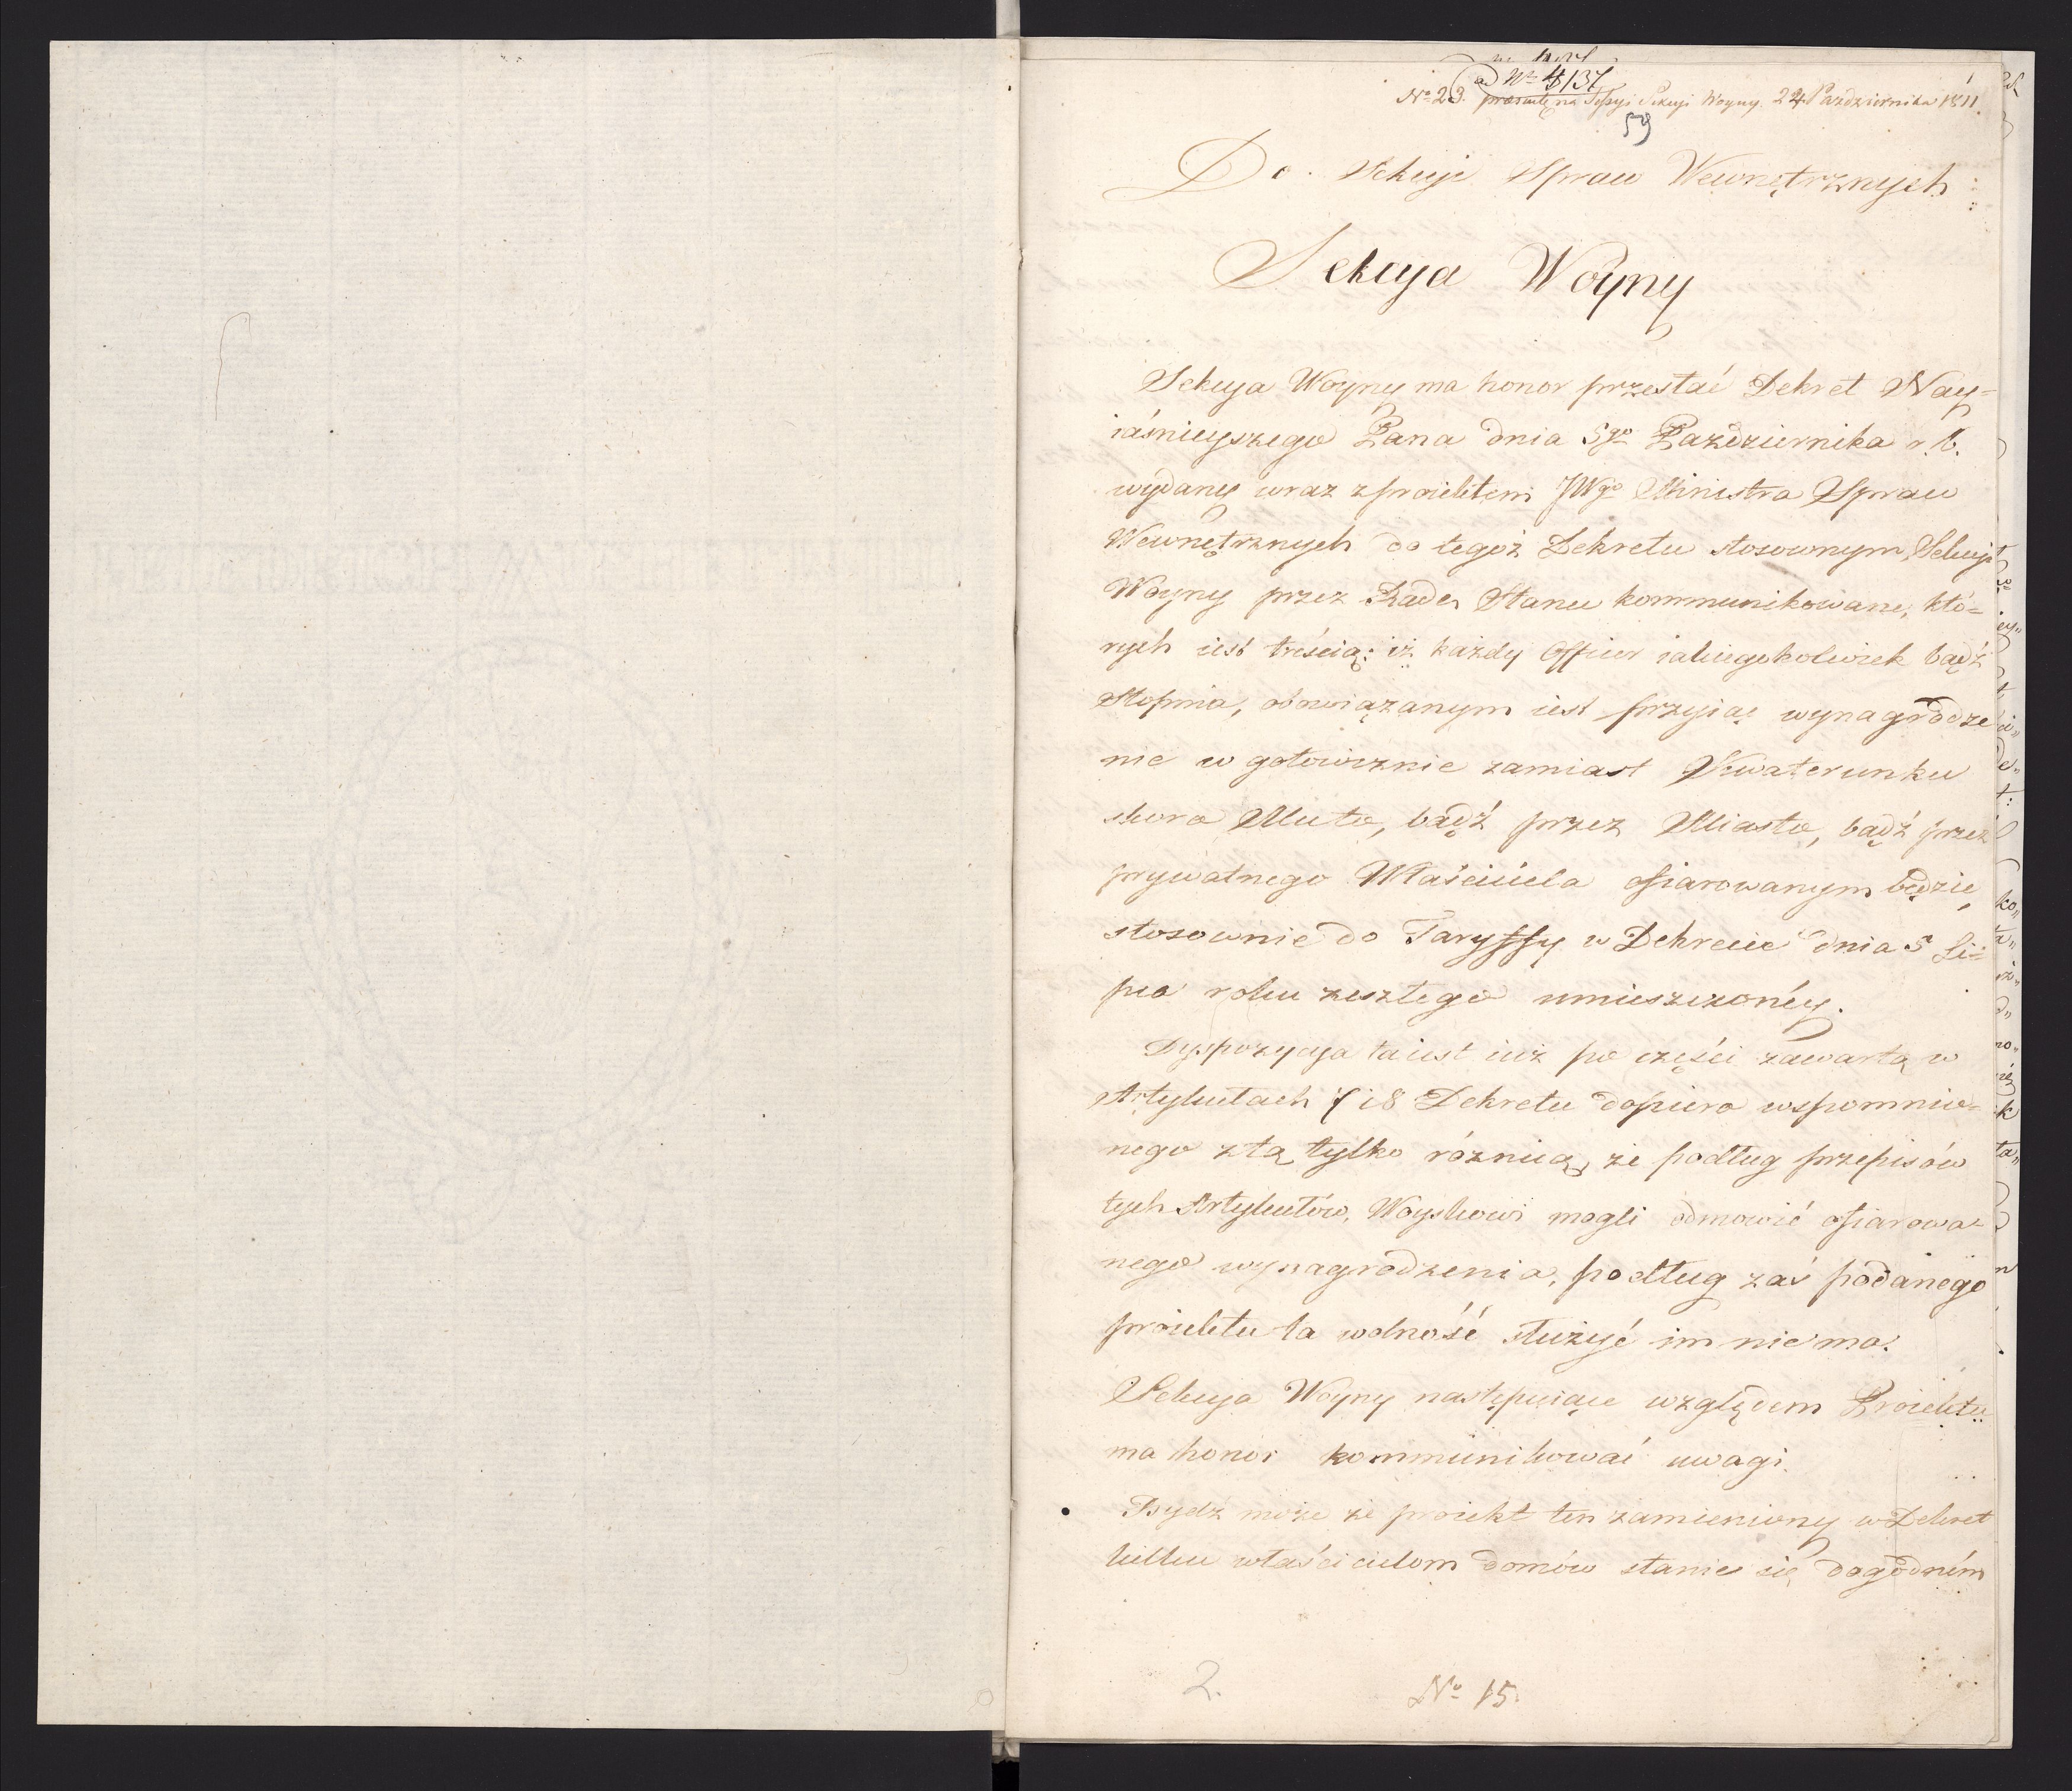 ad Nr 4137
No 23. na Sessyi Sekcyi Woyny 24. Pazdziernika 1811.
59
Do Sekcyi Spraw Wewnętrznych
Sekcya Woyny
Sekcya Woyny ma honor przesłać Dekret Nay=
iaśnieyszego Pana dnia 5go Pazdziernika r. b.
wydany wraz z proiektem JWgo Ministra Spraw
Wewnętrznych do tegoż Dekretu stosownym, Sekcyi
Woyny przez Radę Stanu kommunikowane, któ=
rych iest treścią: iż każdy Officer iakiegokolwiek bądź
Stopnia, obowiązanym iest przyiąć wynagrodze
nie w gotowiznie zamiast Kwaterunku
skoro Mu to, bądź przez Miasto, bądź przez
prywatnego Właściciela ofiarowanym będzie,
stosownie do Taryffy w Dekrecie dnia 5 Li=
pca roku zeszłego umieszczonéy.
Dyspozycya ta iest iuż po części zawartą w
Artykułach 7 i 8 Dekretu dopiero wspomnio=
nego z tą tylko różnicą, że podług przepisów
tych Artykułów, Woyskowi mogli odmowić ofiarowa=
nego wynagrodzenia, podług zaś podanego
proiektu ta wolność służyć im nie ma.
Sekcya Woyny następuiące względem Proiektu
ma honor kommunikować uwagi.
Bydź może że proiekt ten zamieniony w Dekret
kilku właścicielom domów stanie się dogodném
2.
No 15.